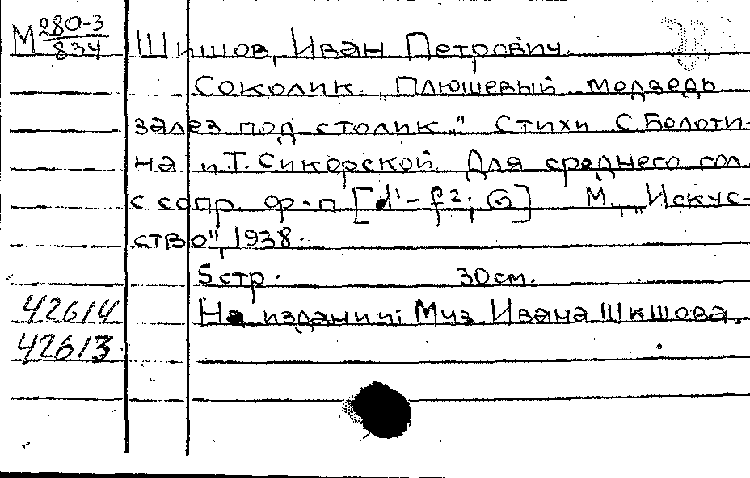 М 280-3
834
Шишов, Иван Петрович.
Соколик. „Плюшевый медведь
залез под столик..." Стихи С. Болоти-
на и Т. Сикорской. Для среднего гол.
с сопр. ф-п [d¹ - f²; G] М., „Искус-
ство", 1938.
5 стр. 30 см.
42614 На издании: Муз. Ивана Шишова.
42613